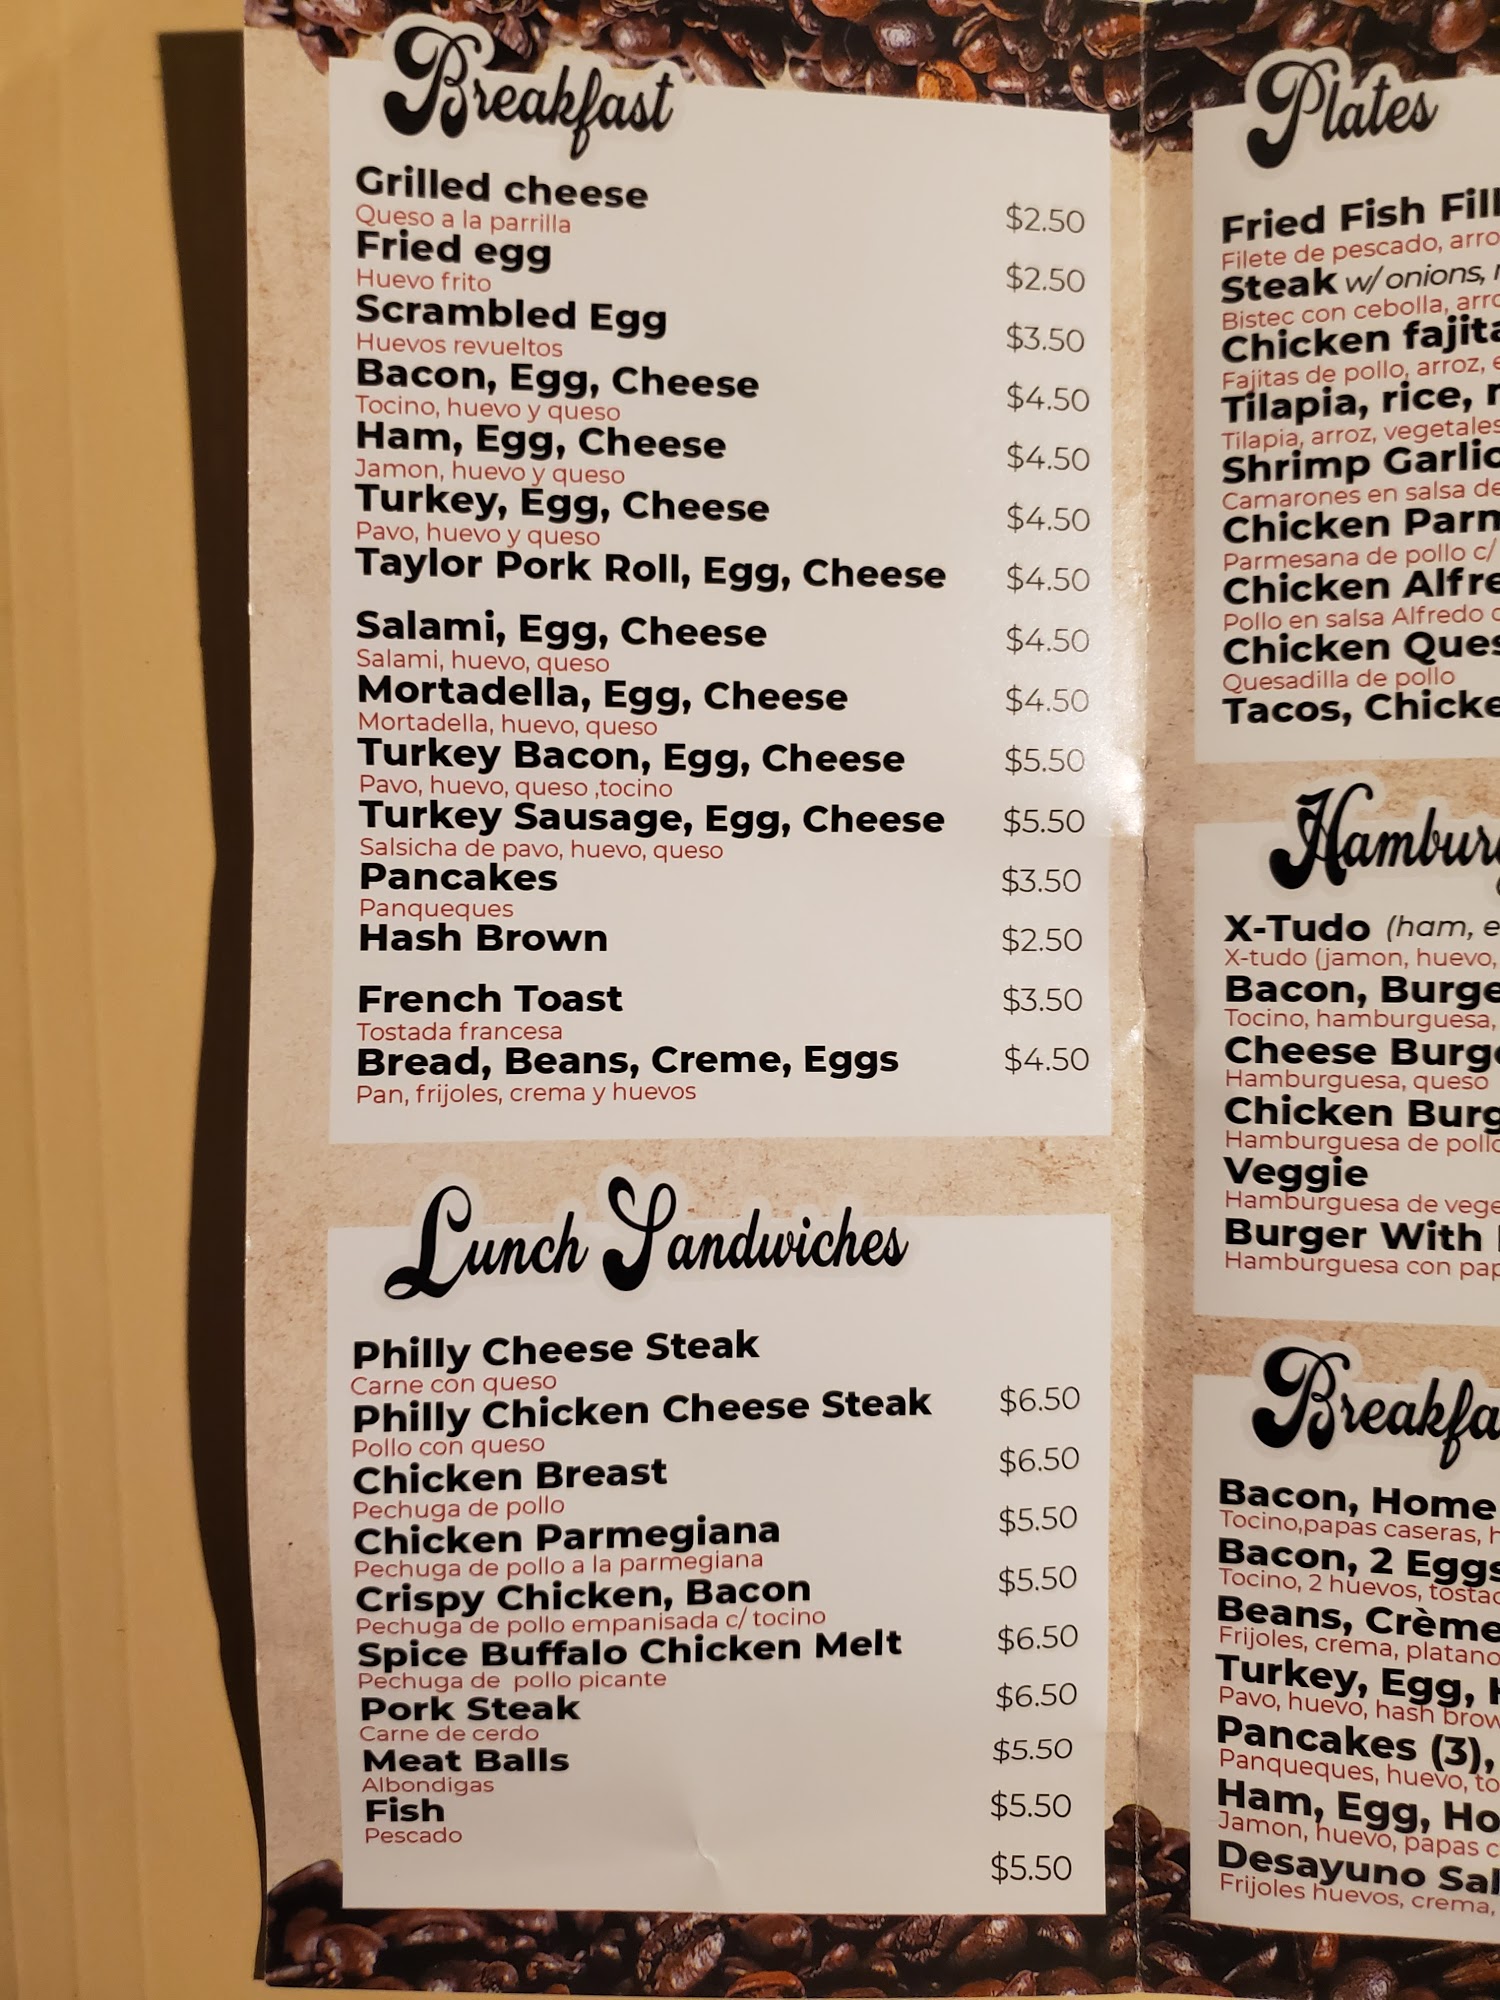 Breakfast
Grilled cheese
Queso a la parrilla
$2.50
Fried egg
Huevo frito
$2.50
Scrambled Egg
Huevos revueltos
$3.50
Bacon, Egg, Cheese
Tocino, huevo y queso
$4.50
Ham, Egg, Cheese
Jamon, huevo y queso
$4.50
Turkey, Egg, Cheese
Pavo, huevo y queso
$4.50
Taylor Pork Roll, Egg, Cheese
$4.50
Salami, Egg, Cheese
Salami, huevo, queso
$4.50
Mortadella, Egg, Cheese
Mortadella, huevo, queso
$4.50
Turkey Bacon, Egg, Cheese
Pavo, huevo, queso ,tocino
$5.50
Turkey Sausage, Egg, Cheese
Salsicha de pavo, huevo, queso
$5.50
Pancakes
Panqueques
$3.50
Hash Brown
$2.50
French Toast
Tostada francesa
$3.50
Bread, Beans, Creme, Eggs
Pan, frijoles, crema y huevos
$4.50
Lunch Sandwiches
Philly Cheese Steak
Carne con queso
$6.50
Philly Chicken Cheese Steak
Pollo con queso
$6.50
Chicken Breast
Pechuga de pollo
$5.50
Chicken Parmegiana
Pechuga de pollo a la parmegiana
$5.50
Crispy Chicken, Bacon
Pechuga de pollo empanisada c/ tocino
$6.50
Spice Buffalo Chicken Melt
Pechuga de pollo picante
$6.50
Pork Steak
Carne de cerdo
$5.50
Meat Balls
Albondigas
$5.50
Fish
Pescado
$5.50
Plates
Fried Fish
Filete de pescado,
Steak w/ onions,
Bistec con cebolla,
Chicken
Fajitas de pollo, arroz,
Tilapia, rice,
Tilapia, arroz, vegetales
Shrimp Garlic
Camarones en salsa
Chicken
Parmesana de pollo c/
Chicken
Pollo en salsa Alfredo
Chicken
Quesadilla de pollo
Tacos,
X-Tudo (ham,
X-tudo (jamon, huevo,
Bacon,
Tocino, hamburguesa,
Cheese
Hamburguesa, queso
Chicken
Hamburguesa de
Veggie
Hamburguesa de
Burger With
Hamburguesa con
Bacon, Home
Tocino,papas caseras,
Bacon, 2 Eggs
Tocino, 2 huevos,
Beans, Crème
Frijoles, crema, platano
Turkey, Egg,
Pavo, huevo, hash
Pancakes (3),
Panqueques, huevo,
Ham, Egg,
Jamon, huevo, papas
Desayuno
Frijoles huevos, crema,